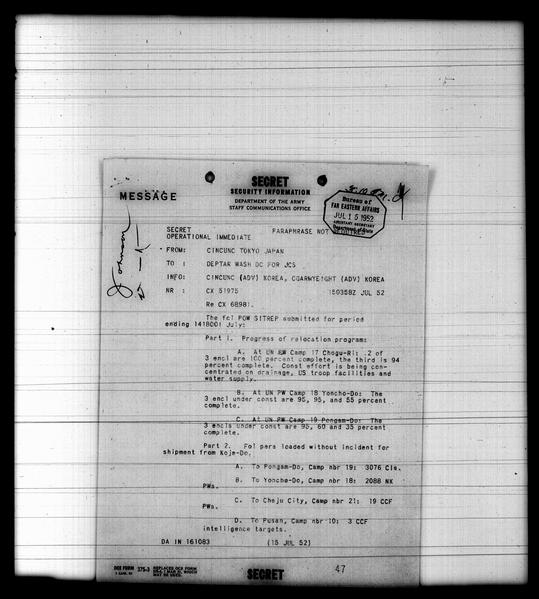 SECRET
SECURITY INFORMATION
DEPARTMENT OF THE ARMY
STAFF COMMUNICATIONS OFFICE
MESSAGE
Bureau of
FAR EASTERN AFFAIRS
JUL 15 1952
ASSISTANT SECRETARY
Department of State
Johnson
SECRET
PARAPHRASE NOT REQUIRED
OPERATIONAL IMMEDIATE
FROM: CINCUNC TOKYO JAPAN
TO : DEPTAR WASH DC FOR JCS
INFO: CINCUNC (ADV) KOREA, CGARMYEIGHT (ADV) KOREA
NR : CX 51975 150358Z JUL 52
Re CX 68981.
The fol POW SITREP submitted for period
ending 141800I July:
Part 1. Progress of relocation program:
A. At UN PW Camp 17 Chogu-Ri: 2 of
3 encl are 100 percent complete, the third is 94
percent complete. Const effort is being con-
centrated on drainage, US troop facilities and
water supply.
B. At UN PW Camp 18 Yoncho-Do: The
3 encl under const are 95, 95, and 55 percent
complete.
C. At UN PW Camp 19 Pongam-Do: The
3 encls under const are 95, 60 and 35 percent
complete.
Part 2. Fol pers loaded without incident for
shipment from Koje-Do.
A. To Pongam-Do, Camp nbr 19: 3076 CIs.
B. To Yoncho-Do, Camp nbr 18: 2088 NK
PWs.
C. To Cheju City, Camp nbr 21: 19 CCF
PWs.
D. To Pusan, Camp nbr 10: 3 CCF
intelligence targets.
DA IN 161083 (15 JUL 52)
OCS FORM 375-3
REPLACES OCS FORM
WHICH
MAY BE USED.
SECRET
47